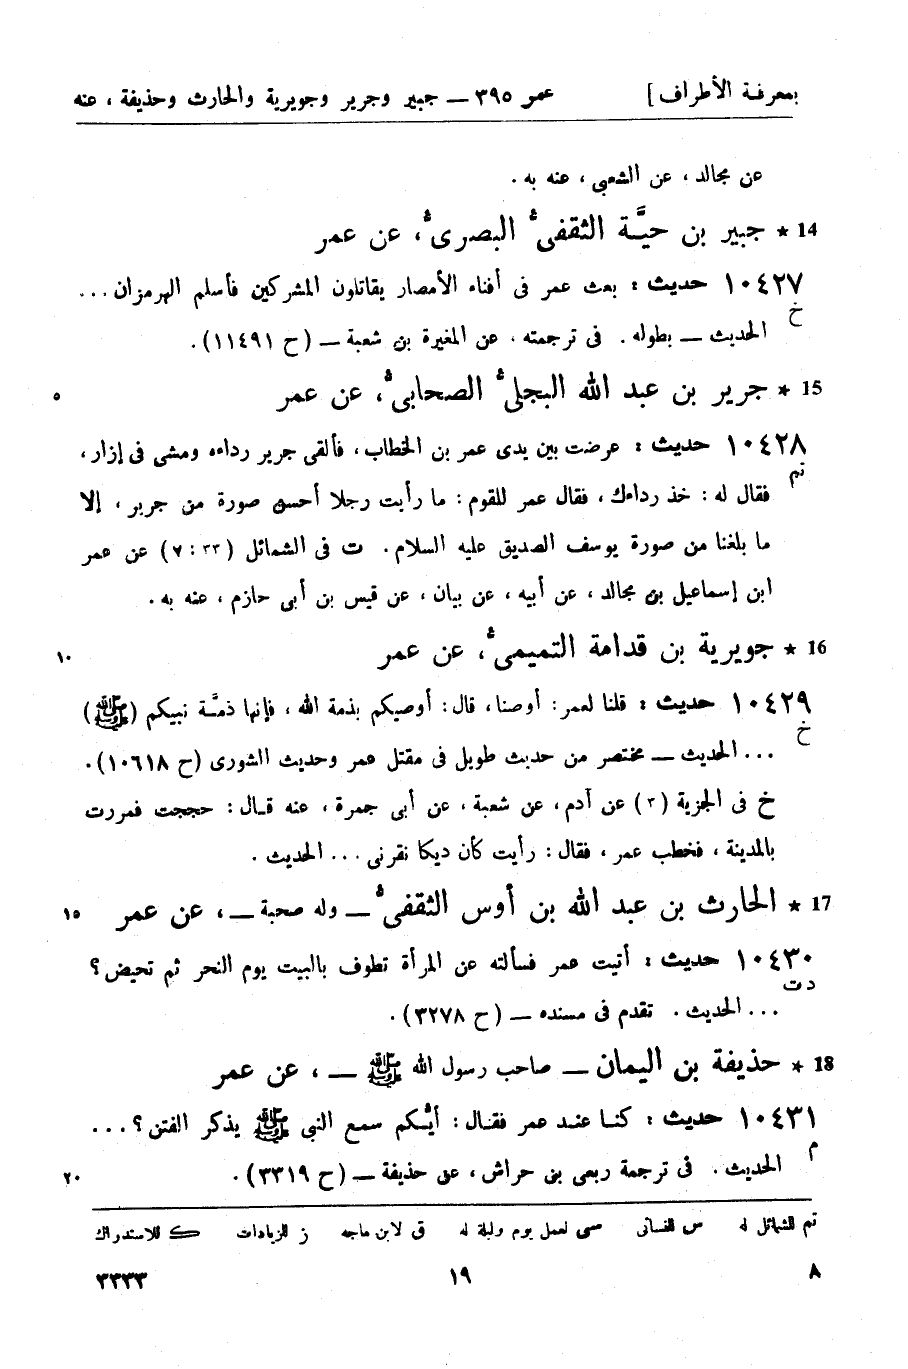 بمعرفة الأطراف] عمر ٣٩٥ — جبير وجرير وجويرية والحارث وحذيفة ، عنه
عن مجالد ، عن الشعبي ، عنه به .
14 * جبير بن حيَّة الثقفيُّ البصريُّ، عن عمر
١٠٤٢٧ حديث : بعث عمر في أفناء الأمصار يقاتلون المشركين فأسلم الهرمزان ...
خ
الحديث — بطوله . في ترجمته ، عن المغيرة بن شعبة — (ح ١١٤٩١) .
15 * جرير بن عبد الله البجليُّ الصحابيُّ، عن عمر ٥
١٠٤٢٨ حديث : عرضت بين يدى عمر بن الخطاب ، فألقى جرير رداءه ومشى في إزار ،
تم
فقال له : خذ رداءك ، فقال عمر للقوم : ما رأيت رجلا أحسن صورة من جرير ، إلا
ما بلغنا من صورة يوسف الصديق عليه السلام . ت في الشمائل (٣٣ : ٧) عن عمر
ابن إسماعيل بن مجالد ، عن أبيه ، عن بيان ، عن قيس بن أبي حازم ، عنه به .
16 * جويرية بن قدامة التميميُّ، عن عمر ١٠
١٠٤٢٩ حديث : قلنا لعمر : أوصنا ، قال : أوصيكم بذمة الله ، فإنها ذمَّة نبيكم (ﷺ)
خ
... الحديث — مختصر من حديث طويل في مقتل عمر وحديث الشورى (ح ١٠٦١٨) .
خ في الجزية (٣) عن آدم ، عن شعبة ، عن أبي جمرة ، عنه قال : حججت فمررت
بالمدينة ، فخطب عمر ، فقال : رأيت كأن ديكا نقرني ... الحديث .
17 * الحارث بن عبد الله بن أوس الثقفيُّ — وله صحبة — ، عن عمر ١٥
١٠٤٣٠ حديث : أتيت عمر فسألته عن المرأة تطوف بالبيت يوم النحر ثم تحيض ؟
د ت
... الحديث . تقدم في مسنده — (ح ٣٢٧٨) .
18 * حذيفة بن اليمان — صاحب رسول الله ﷺ — ، عن عمر
١٠٤٣١ حديث : كنا عند عمر فقال : أيُّكم سمع النبي ﷺ يذكر الفتن ؟ ...
م
الحديث . في ترجمة ربعي بن حراش ، عن حذيفة — (ح ٣٣١٩) . ٢٠
تم للشمائل له س للنسائي سى لعمل يوم وليلة له ق لابن ماجه ز للزيادات ك للاستدراك
٨ ١٩ ٣٣٣٣